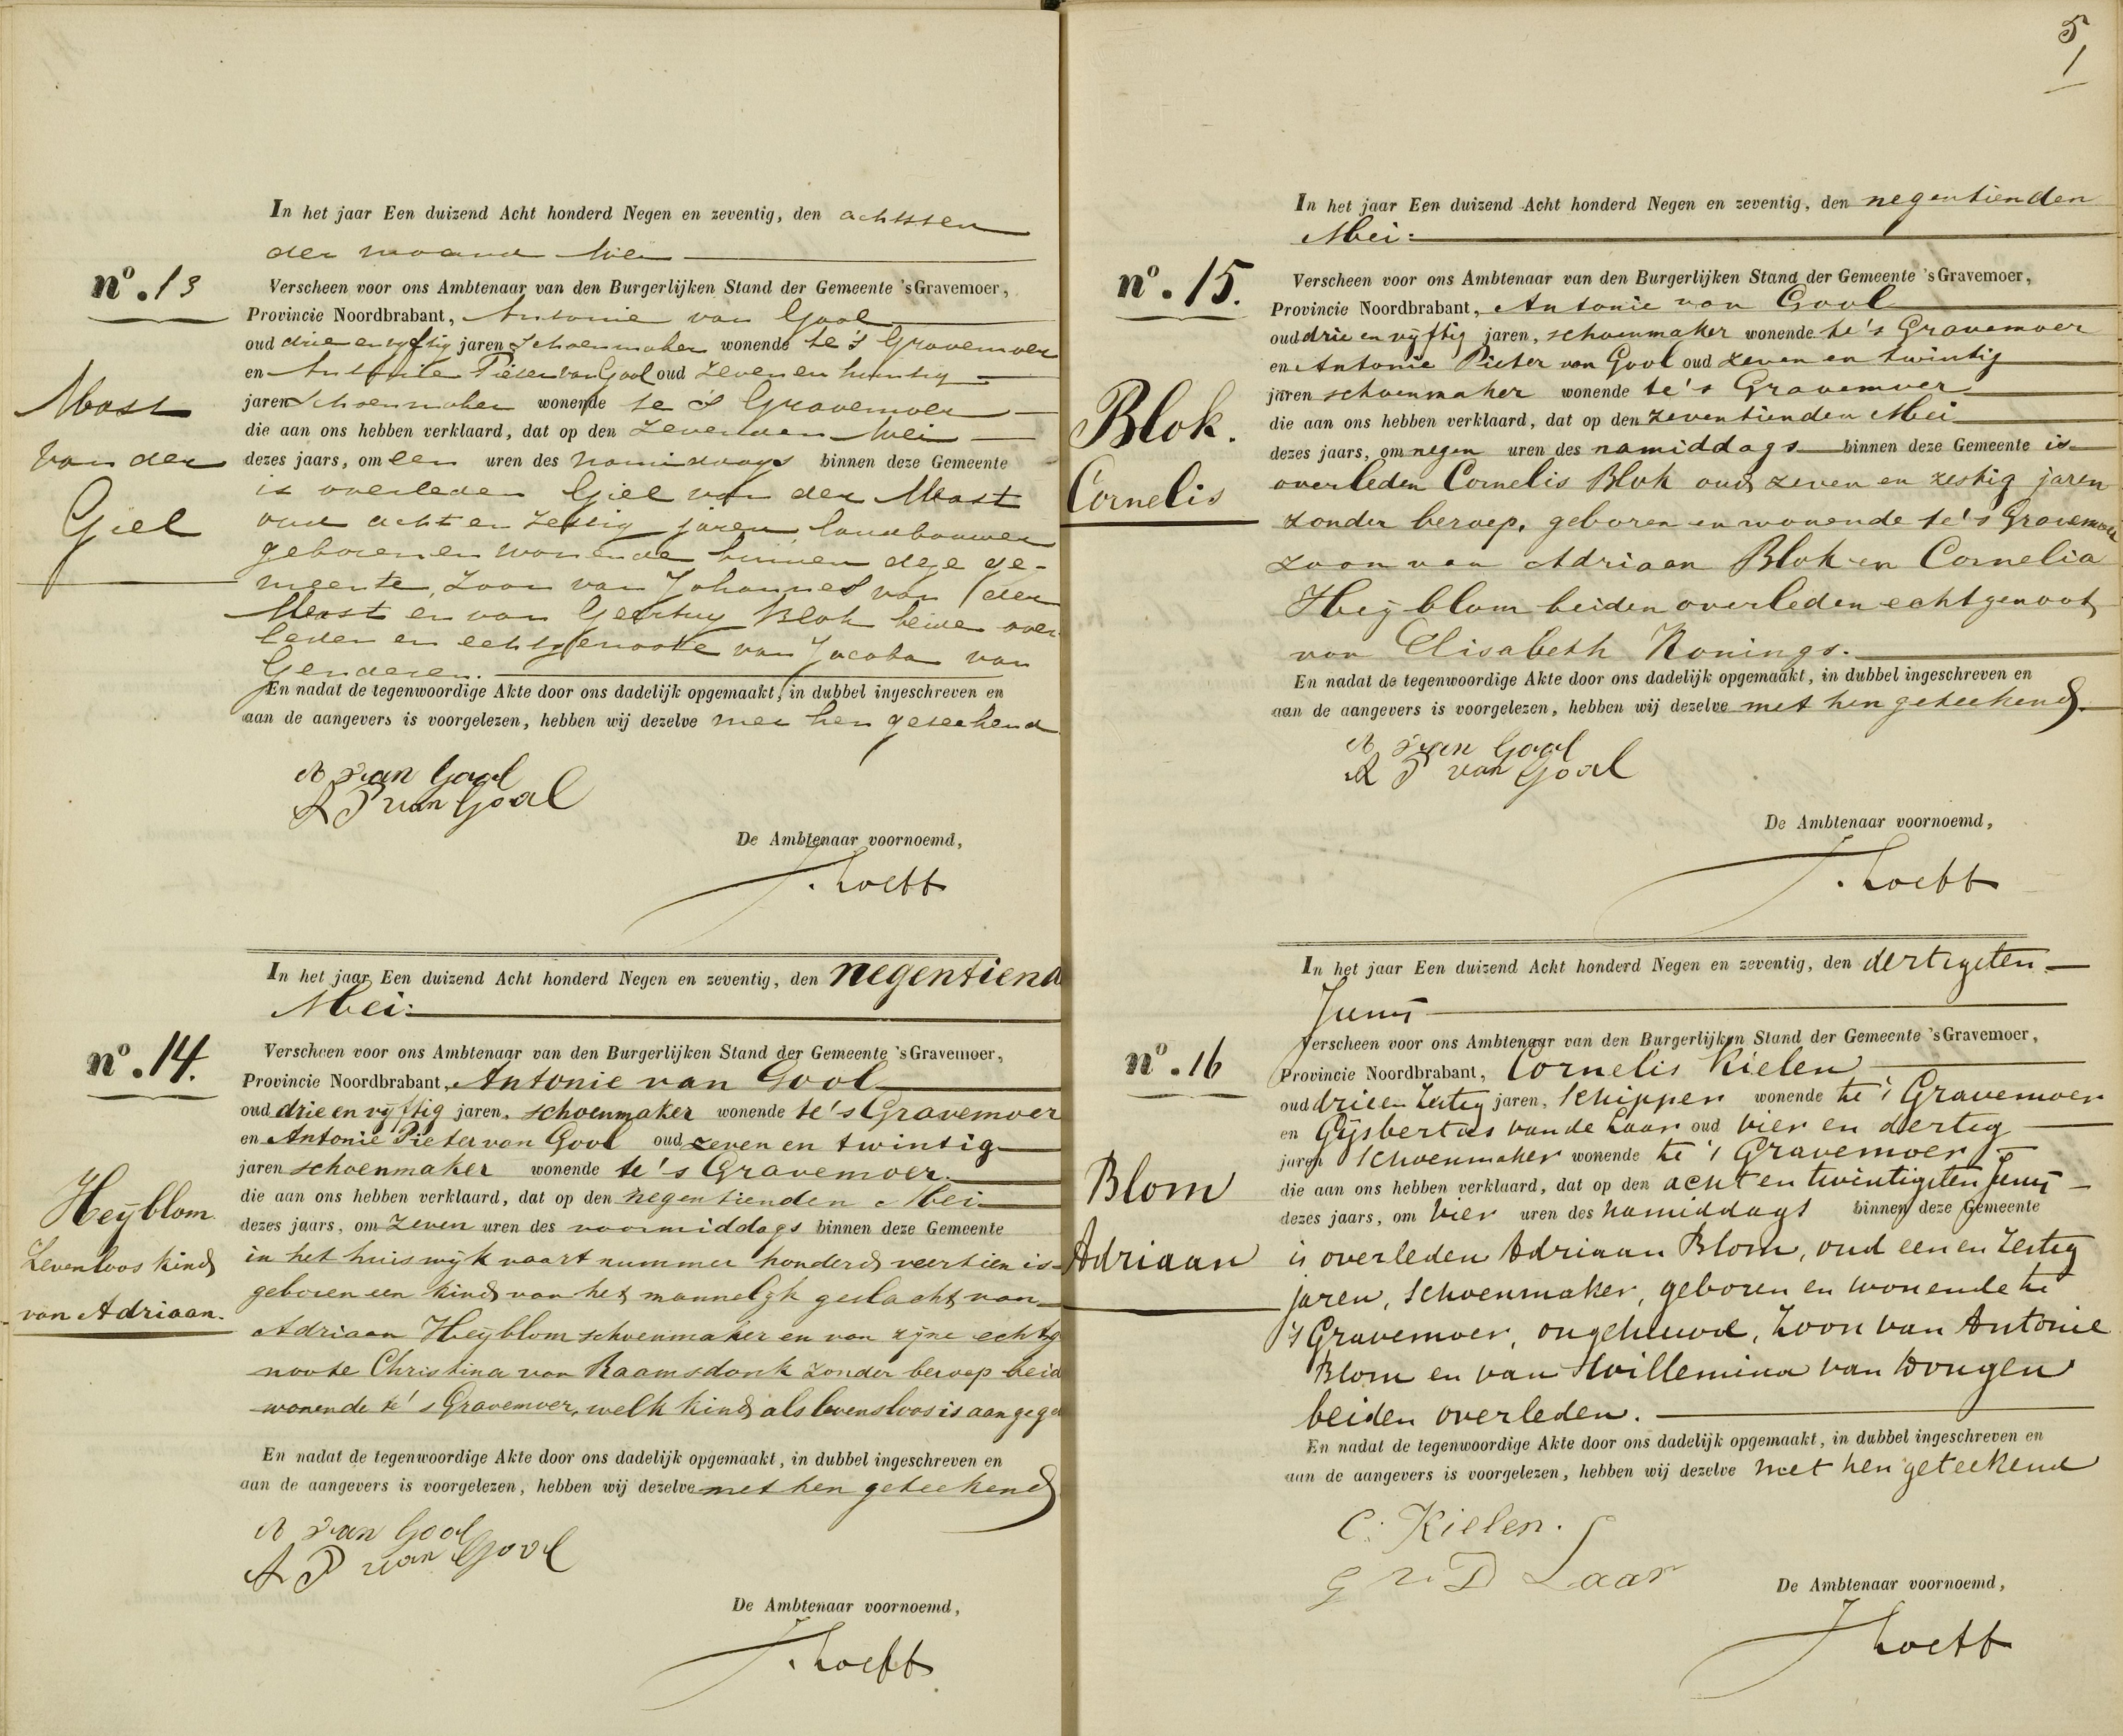 In het jaar Een duizend Acht honderd Negen en zeventig, den achtsten
der maand Mei
n°. 13
Verscheen voor ons Ambtenaar van den Burgerlijken Stand der Gemeente 'sGravemoer,
Provincie Noordbrabant, Antonie van Gool
oud drie en vyftig jaren Schoenmaker wonende te 's Gravemoer
en Antonie Pieter van Gool oud zeven en twintig
Mast
jaren Schoenmaker wonende te 's Gravemoer
die aan ons hebben verklaard, dat op den zevenden Mei
van der
dezes jaars, om een uren des namiddags binnen deze Gemeente
is overleden Giel van der Mast
Giel
oud acht en zestig jaren, landbouwer
geboren en wonende binnen deze ge-
meente, zoon van Johannes van der
Mast en van Geertruy Blok beiden over
leden en echtgenoote van Jacoba van
Genderen.
En nadat de tegenwoordige Akte door ons dadelijk opgemaakt, in dubbel ingeschreven en
aan de aangevers is voorgelezen, hebben wij dezelve met hen geteekend
A van Gool
A P van Gool
De Ambtenaar voornoemd,
In het jaar Een duizend Acht honderd Negen en zeventig, den negentiend
Mei:
n°. 14.
Verscheen voor ons Ambtenaar van den Burgerlijken Stand der Gemeente 'sGravemoer,
Provincie Noordbrabant, Antonie van Gool
oud drie en vyftig jaren, schoenmaker wonende te 's Gravemoer
en Antonie Pieter van Gool oud zeven en twintig
jaren schoenmaker wonende te 's Gravemoer
die aan ons hebben verklaard, dat op den negentienden Mei
Heyblom
dezes jaars, om zeven uren des voormiddags binnen deze Gemeente
Levenloos kind
in het huis wyk vaart nummer honderd veertien is
geboren een kind van het mannelyk geslacht van
van Adriaan.
Adriaan Heyblom schoenmaker en van zyne echtg
noote Christina van Raamsdonk zonder beroep beid
wonende te 's Gravemoer, welk kind als levensloos is aangege
En nadat de tegenwoordige Akte door ons dadelijk opgemaakt, in dubbel ingeschreven en
aan de aangevers is voorgelezen, hebben wij dezelve met hen geteekend
A van Gool
A P van Gool
De Ambtenaar voornoemd,
5
In het jaar Een duizend Acht honderd Negen en zeventig, den negentienden
Mei:
n°. 15.
Verscheen voor ons Ambtenaar van den Burgerlijken Stand der Gemeente 'sGravemoer,
Provincie Noordbrabant, Antonie van Gool
oud drie en vyftig jaren, schoenmaker wonende te 's Gravemoer
en Antonie Pieter van Gool oud zeven en twintig
jaren schoenmaker wonende te 's Gravemoer
Blok.
die aan ons hebben verklaard, dat op den zeventienden Mei
dezes jaars, om negen uren des namiddags binnen deze Gemeente is
Cornelis
overleden Cornelis Blok oud zeven en zestig jaren
zonder beroep, geboren en wonende te 's Gravemoer
zoon van Adriaan Blok en Cornelia
Heyblom beiden overleden echtgenoot
van Elisabeth Konings.
En nadat de tegenwoordige Akte door ons dadelijk opgemaakt, in dubbel ingeschreven en
aan de aangevers is voorgelezen, hebben wij dezelve met hen geteekend.
A van Gool
A P van Gool
De Ambtenaar voornoemd,
In het jaar Een duizend Acht honderd Negen en zeventig, den dertigsten
Juny
n°. 16
Verscheen voor ons Ambtenaar van den Burgerlijken Stand der Gemeente 'sGravemoer,
Provincie Noordbrabant, Cornelis Kielen
oud drie en zestig jaren, Schipper wonende te 's Gravemoer
en Gysbertus van de Laar oud vier en dertig
jaren Schoenmaker wonende te 's Gravemoer
Blom
die aan ons hebben verklaard, dat op den acht en twintigsten Juny
dezes jaars, om vier uren des namiddags binnen deze Gemeente
Adriaan
is overleden Adriaan Blom, oud een en zestig
jaren, Schoenmaker, geboren en wonende te
's Gravemoer, ongehuwd, Zoon van Antonie
Blom en van Willemina van Dongen
beiden overleden.
En nadat de tegenwoordige Akte door ons dadelijk opgemaakt, in dubbel ingeschreven en
aan de aangevers is voorgelezen, hebben wij dezelve met hen geteekend
C. Kielen.
G v. D Laar
De Ambtenaar voornoemd,